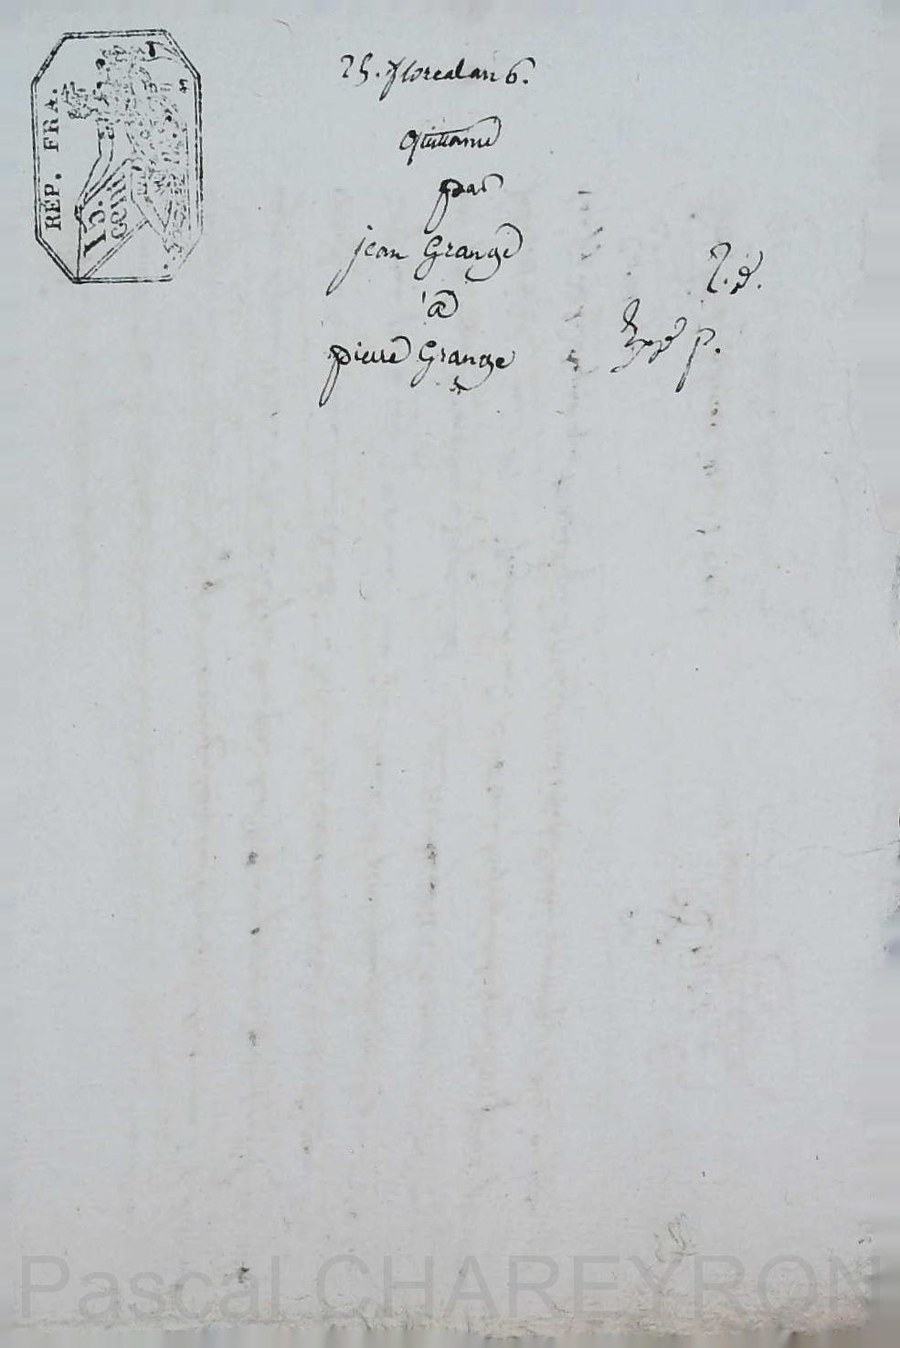 REP. FRA.
15.
cent
25. floreal an 6.
quittance
par
jean Grange
a
pierre Grange
Pascal CHAREYRON